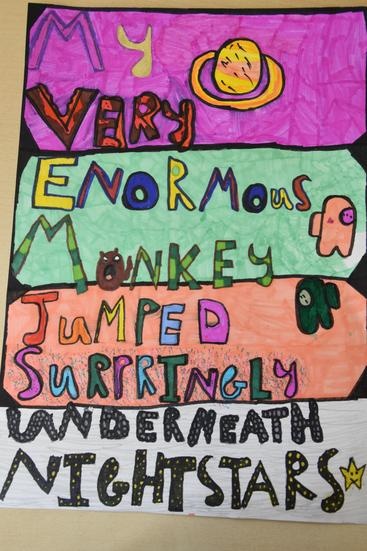 MY
VERY
ENORMOUS
MONKEY
JUMPED
SURPRINGLY
UNDERNEATH
NIGHTSTARS